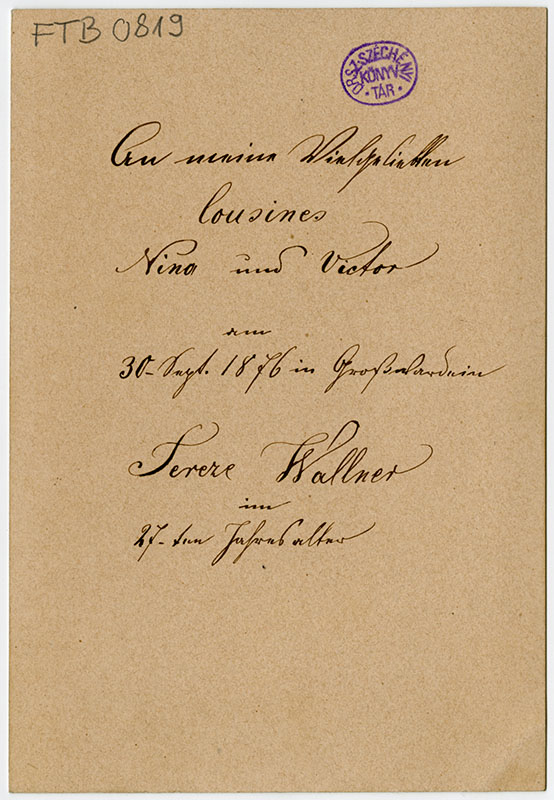 FTB 0819
ORSZ. SZÉCHÉNYI
KÖNYV
TÁR
An meine Vielgeliebten
Cousines
Nina und Victor
am
30- Sept. 1876 in Großwardein
Tereze Wallner
im
27-ten Jahresalter